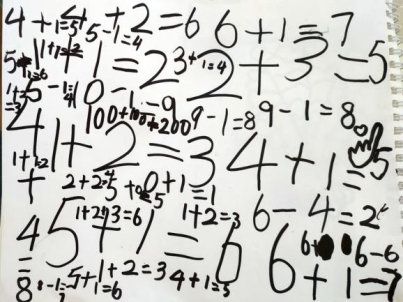 4+1=5 4+2=6 6+1=7
5-1=4
5+1=6 1+1=2 1+1=2 3+1=4 2+3=5
1+2=3 5-1=4 10-1=9 9-1=8 9-1=8
100+100=200
1+1=2 1+2=3 4+1=5
2+2=4 5+0=5 0+1=1
4+4=8 1+2+3=6 5+1=6 1+2=3 6-4=2
6+0=6 6-6
5+1=6 1+2=3 4+1=5 6+1=7